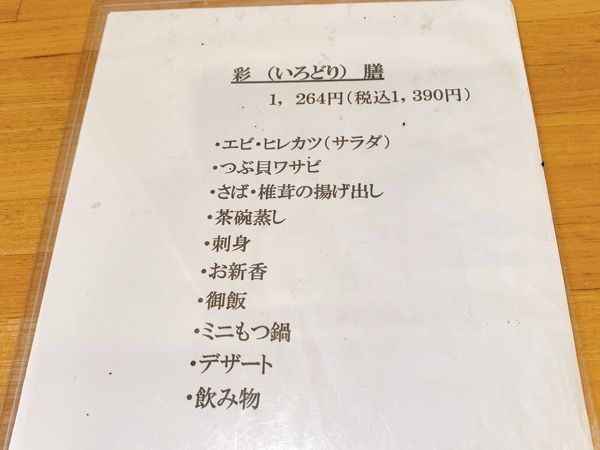 彩 （いろどり） 膳
1，264円（税込1，390円）
・エビ・ヒレカツ（サラダ）
・つぶ貝ワサビ
・さば・椎茸の揚げ出し
・茶碗蒸し
・刺身
・お新香
・御飯
・ミニもつ鍋
・デザート
・飲み物